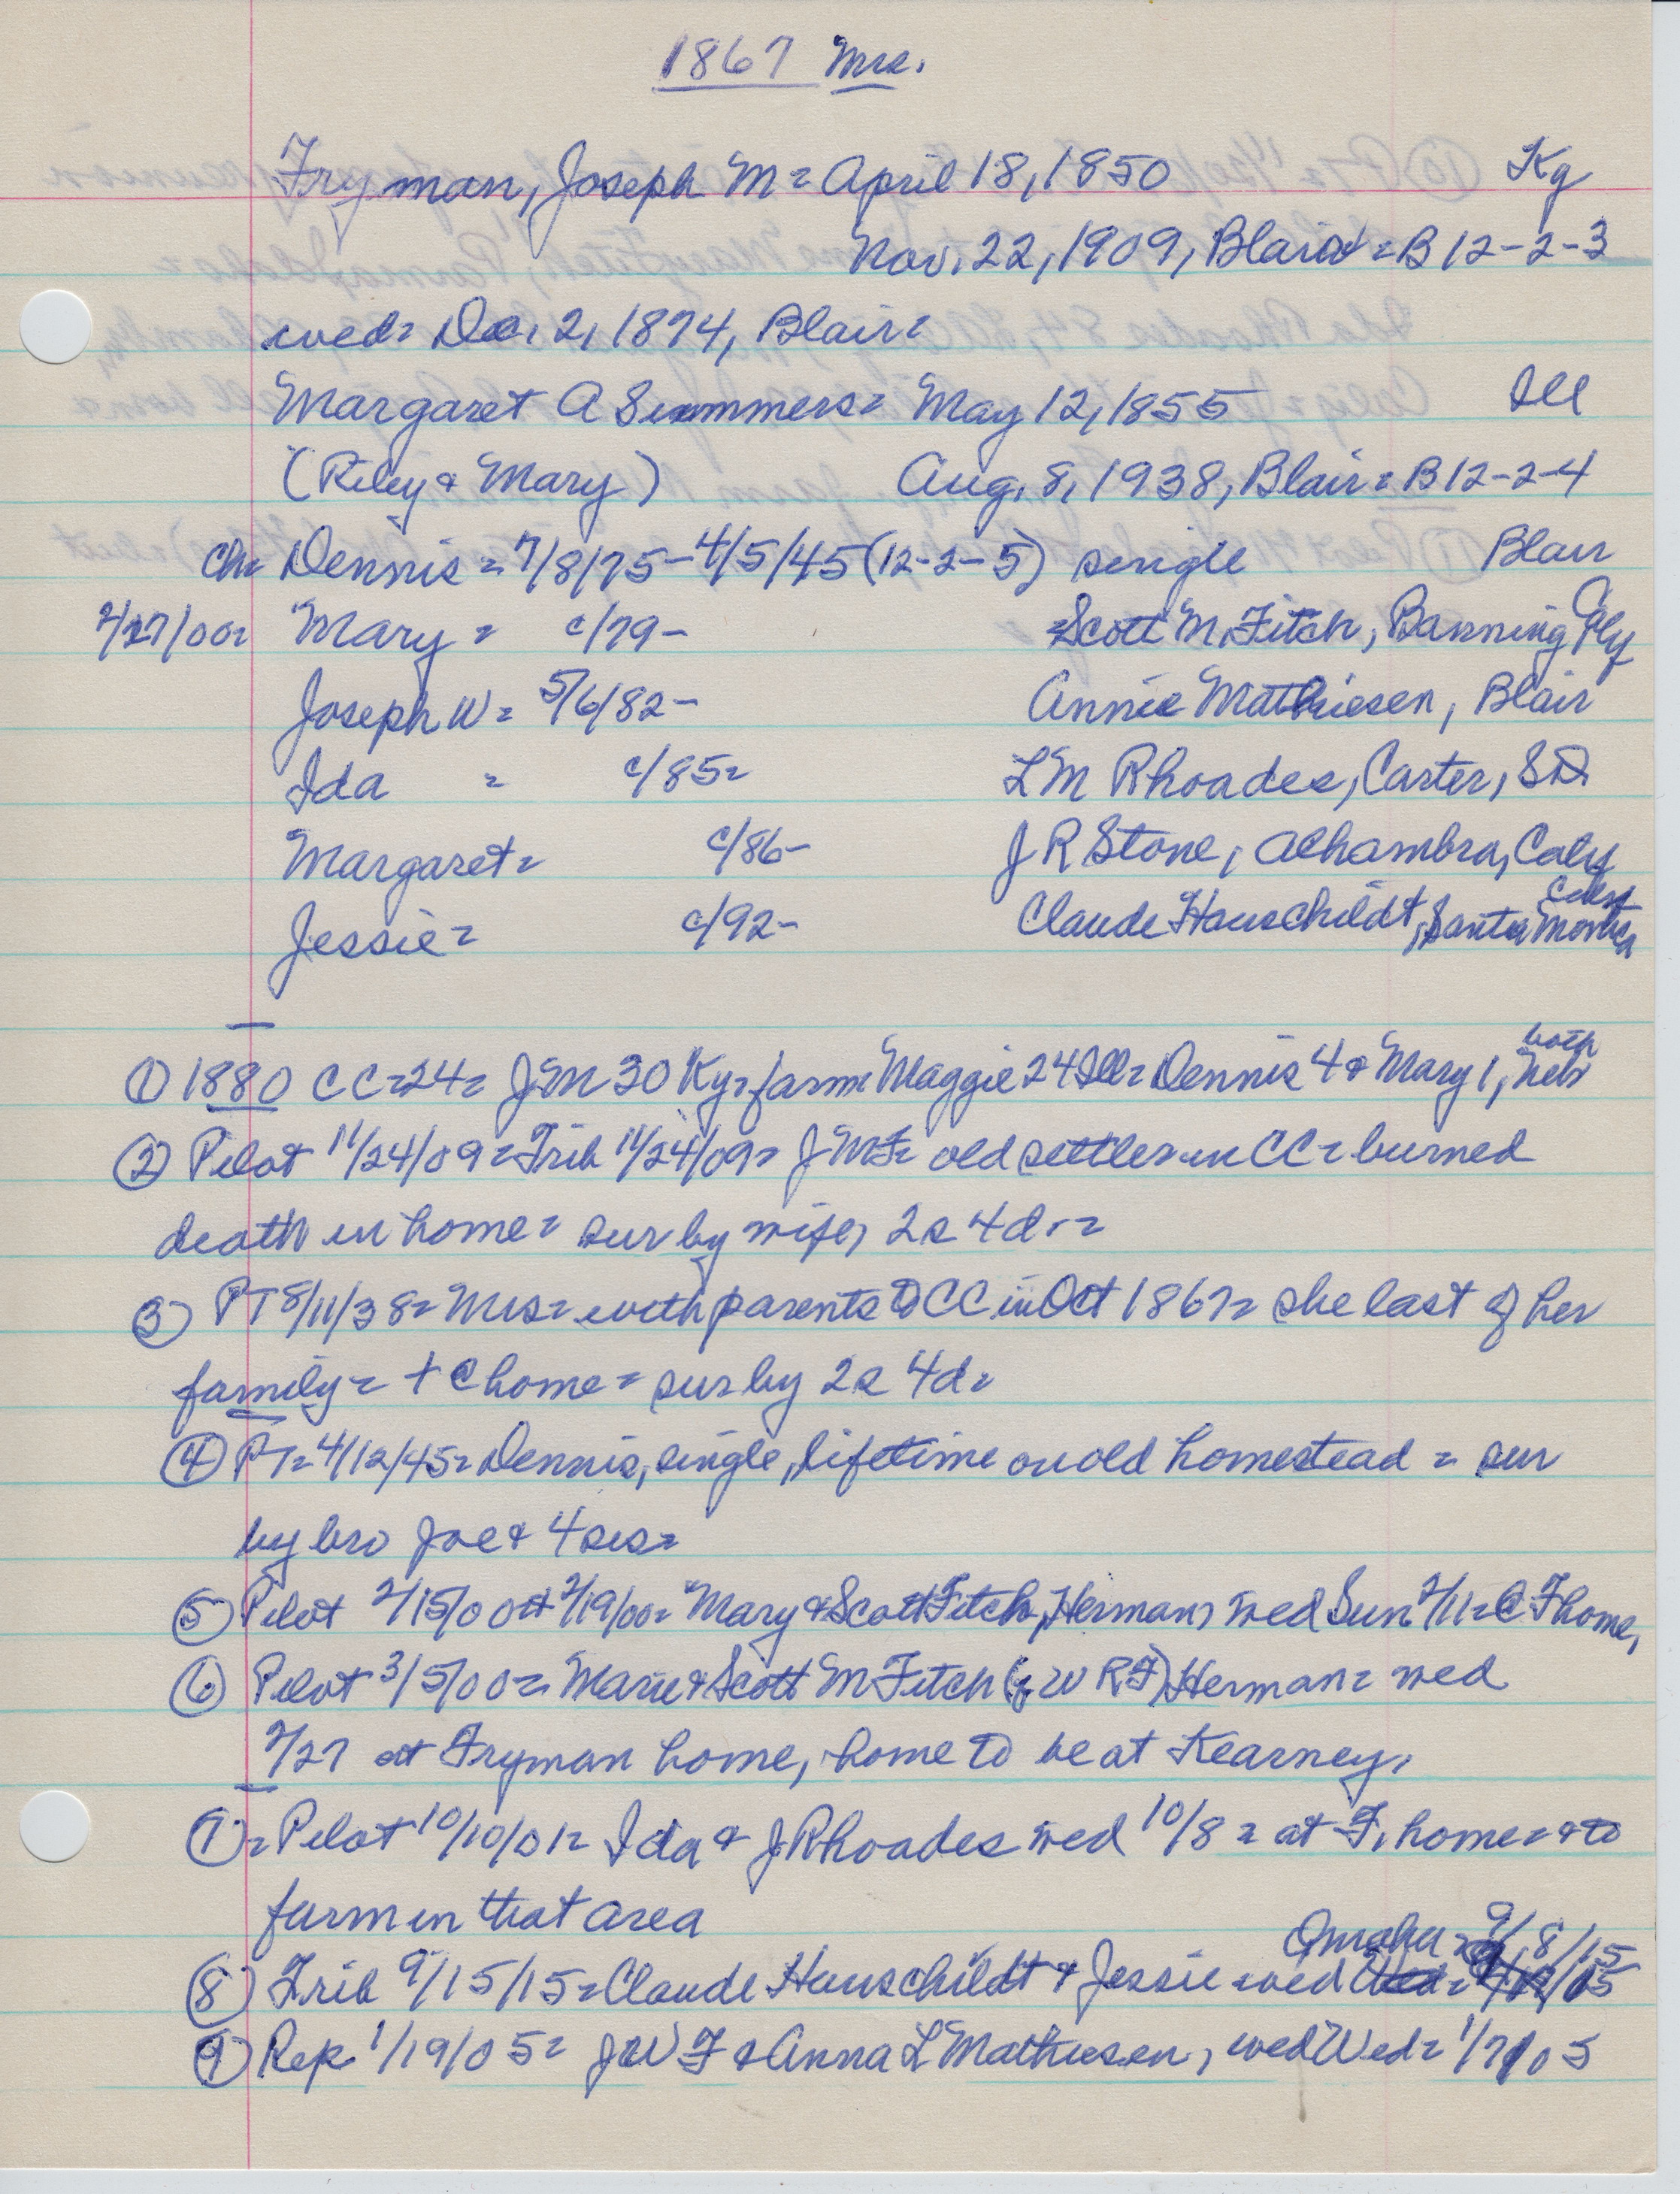 1867 Mrs.
Fryman, Joseph M = April 18, 1850 Ky
Nov. 22, 1909, Blair = B 12-2-3
wed = Dec. 2, 1874, Blair =
Margaret A Summers = May 12, 1855 Ill
(Riley & Mary) Aug. 8, 1938, Blair = B 12-2-4
Ch = Dennis = 7/8/75 - 4/5/45 (12-2-5) single Blair
2/27/00 = Mary = c/79 - = Scott M. Fitch, Banning Clf
Joseph W = 5/6/82 - Annie Mathiesen, Blair
Ida = c/85 = L M Rhoades, Carter, S.D.
Margaret = c/86 - J R Stone, Alhambra, Calif
Jessie = c/92 - Claude Hauschildt, Santa Monica Calif
① 1880 CC = 24 = J M 30 Ky = farm = Maggie 24 Ill = Dennis 4 & Mary 1, both Neb
② Pilot 11/24/09 = Trib 11/24/09 = J M F = old settler in CC = burned
death in home = sur by wife, 2s 4d. =
③ PT 8/11/38 = Mrs = with parents to CC in Oct 1867 = she last of her
family = + @ home = sur by 2s 4d =
④ PT = 4/12/45 = Dennis, single, lifetime on old homestead = sur
by bro Joe & 4 sis =
⑤ Pilot 2/15/00 + 2/19/00 = Mary & Scott Fitch, Herman, wed Sun 2/11 = @ F home,
⑥ Pilot 3/5/00 = Marie & Scott M Fitch (of W R F) Herman = wed
2/27 at Fryman home, home to be at Kearney,
⑦ = Pilot 10/10/01 = Ida & J Rhoades wed 10/8 = at F. home = & to
farm in that area
⑧ Trib 9/15/15 = Claude Hauschildt & Jessie = wed Omaha = 9/8/15
⑨ Rep 1/19/05 = J W F & Anna L Mathiesen, wed Wed = 1/7/05